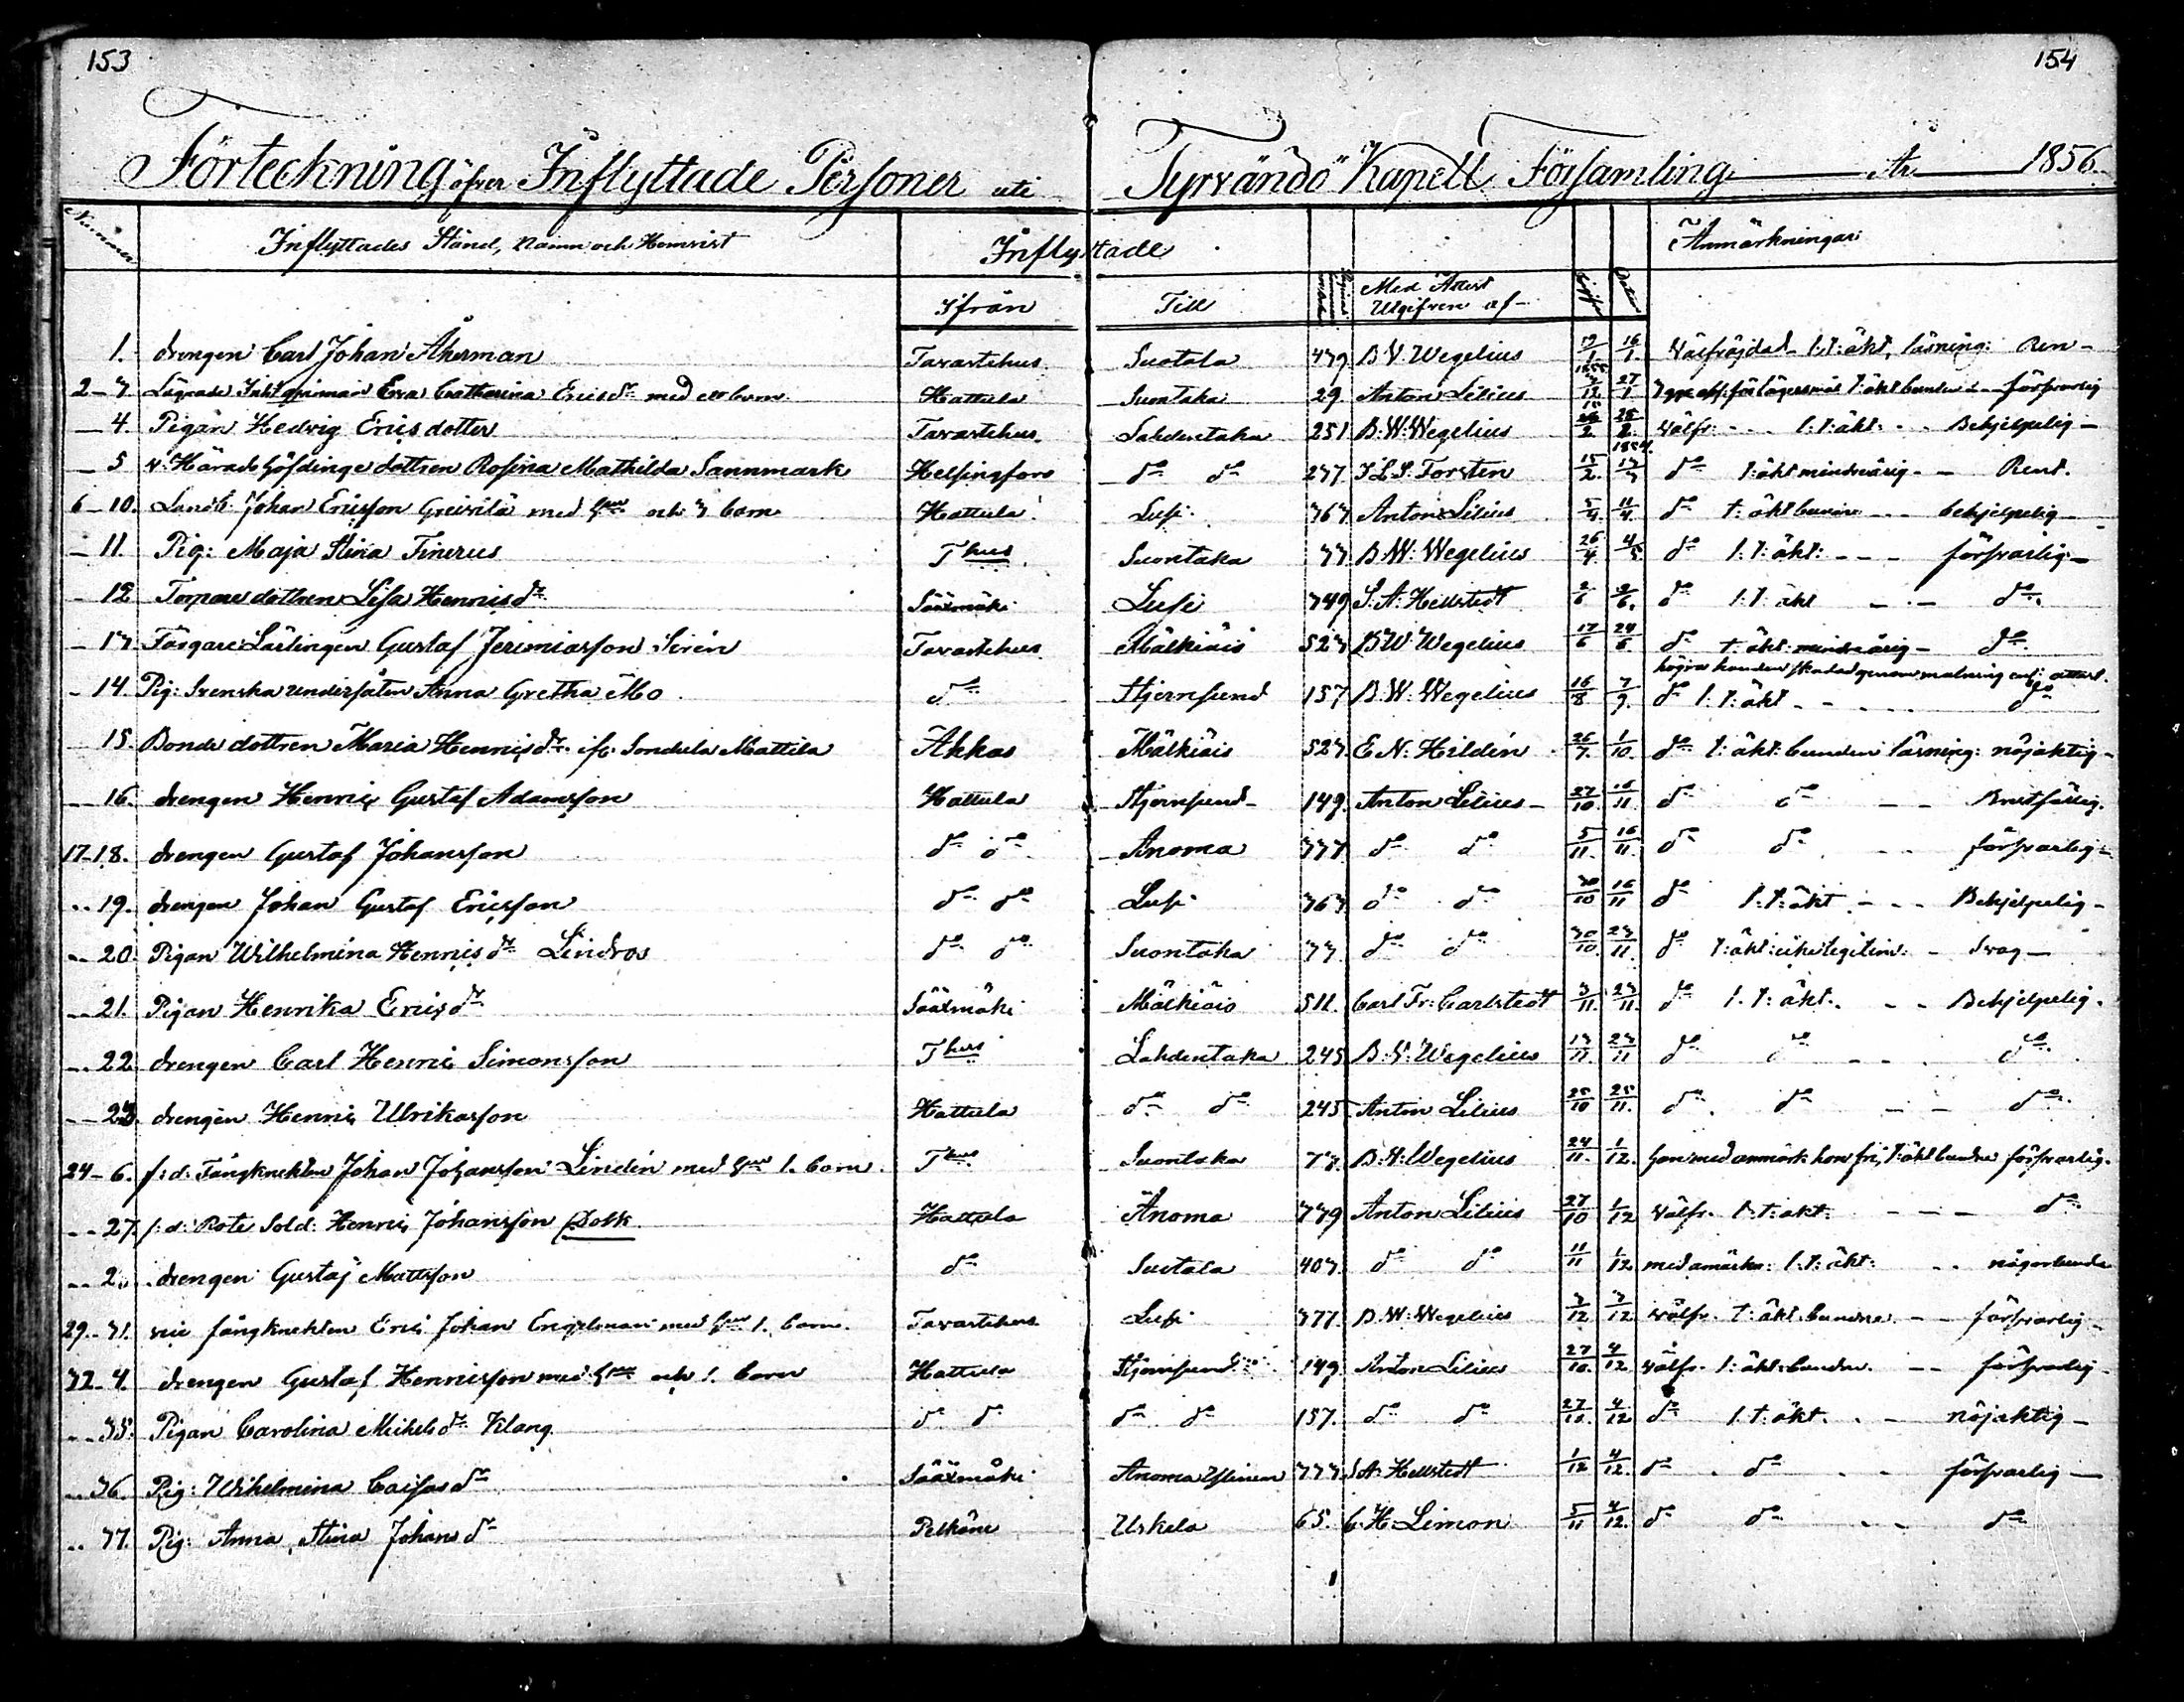 153
154
Förteckning öfver Inflyttade Personer uti Tyrvändö Kapell Församling År 1856.
Nummer
Inflyttades Stånd, Namn och Hemvist
Inflyttade
Anmärkningar
Ifrån
Till
Med Attest Utgifven af
1. drengen Carl Johan Åkerman Tavastehus Suotala 439 B. W. Wegelius 12/1 16/1 Välfrejdad l. t: äkt, läsning: Ren
2-3 Lägrade Eva Catharina Ericsdr med ett barn Hattula Suontaka 29 Anton Lilius 27/1 försvarlig
4. Pigan Hedvig Ericsdotter Tavastehus Lahdentaka 251 B. W. Wegelius 25/2 Välfr. l: t: äkt. Behjelpelig
5 v. Härads Höfdinge dottren Rosina Mathilda Sannmark Helsingfors do do 237 Forsten 15/2 do t: äkt minderårig Rent.
6-10. Landb. Johan Ericsson Greisilä med hu och 3 barn Hattula Lusi 363 Anton Lilius 5/4 11/4 do t: äkt bunden behjelpelig
11. Pig: Maja Stina Finerus Thus Suontaka 33 B. W. Wegelius 26/4 4/5 do l: t: äkt: försvarlig
12 Torpare dottren Lisa Henricsdr Sääxmäki Lusi 349 S. A. Hellstedt 2/6 do l: t: äkt do
13 Färgare Lärlingen Gustaf Jeremiasson Sirén Tavastehus Mälkiäis 523 B W Wegelius 17/6 24/6 do t: äkt: minderårig do
högra handen skadad genom malning enl: attest.
14 Pig: Svenska undersåten Anna Gretha Mo do Stjernsund 157 B. W. Wegelius 16/8 7/9 do l: t: äkt do
15 Bonde dottren Maria Henricsdr ifr. Sondula Mattila Akkas Mälkiäis 523 E N. Hildén 26/7 1/10 do t: äkt: bunden läsning: nöjaktig
16. drengen Henric Gustaf Adamsson Hattula Stjernsund 149 Anton Lilius 27/10 16/11 do do Bristfällig.
17-18. drengen Gustaf Johansson do do Anoma 333 do do 5/11 16/11 do do försvarlig
19. drengen Johan Gustaf Ericsson do do Lusi 363 do do 30/10 16/11 do l: t: äkt Behjelpelig
20. Pigan Wilhelmina Henricsdr Lindros do do Suontaka 33 do do 30/10 23/11 do t: äkt: icke legitim: Svag
21. Pigan Henrika Ericsdr Sääxmäki Mälkiäis 511 Carl Fr: Carlstedt 3/11 23/11 do l: t: äkt. Behjelpelig.
22 drengen Carl Henric Simonsson Thus Lahdentaka 245 B. W. Wegelius 13/11 23/11 do do do
23. drengen Henric Ulrikasson Hattula do do 245 Anton Lilius 25/10 25/11 do do do
24-6. f: d: Fångknekten Johan Johansson Lindén med hu 1. barn Thus Suontaka 33 B. W. Wegelius 24/11 1/12 han med anmärk hon fri, t: äkt bundne försvarlig.
27. f: d: Rote Sold: Henric Johansson Dolk Hattula Anoma 339 Anton Lilius 27/10 1/12 Välfr. l: t: äkt: do
drengen Gustaf Mattsson do Suotala 403 do do 11/11 1/12 med amärkn: l: t: äkt: någorlunda
29-31. vice fångknekten Eric Johan Engelman med hu 1. barn. Tavastehus Lusi 377 B. W. Wegelius 3/12 3/12 Välfr. t: äkt. bundne försvarlig
32-4. drengen Gustaf Henricsson med hu och 1. barn Hattula Stjernsund 149 Anton Lilius 27/10 4/12 Välfr. t: äkt: bunden försvarlig
35. Pigan Carolina Michelsdr Klang do do do do 157. do do 4/12 do l: t: äkt. nöjaktig
36. Pig: Wilhelmina Caisasdr Sääxmäki Anoma Uslinen 333 S. A. Hellstedt 1/12 4/12 do do försvarlig
37. Pig: Anna Stina Johansdr Pelkäne Uskela 65. C. H. Limon 5/11 4/12 do do do